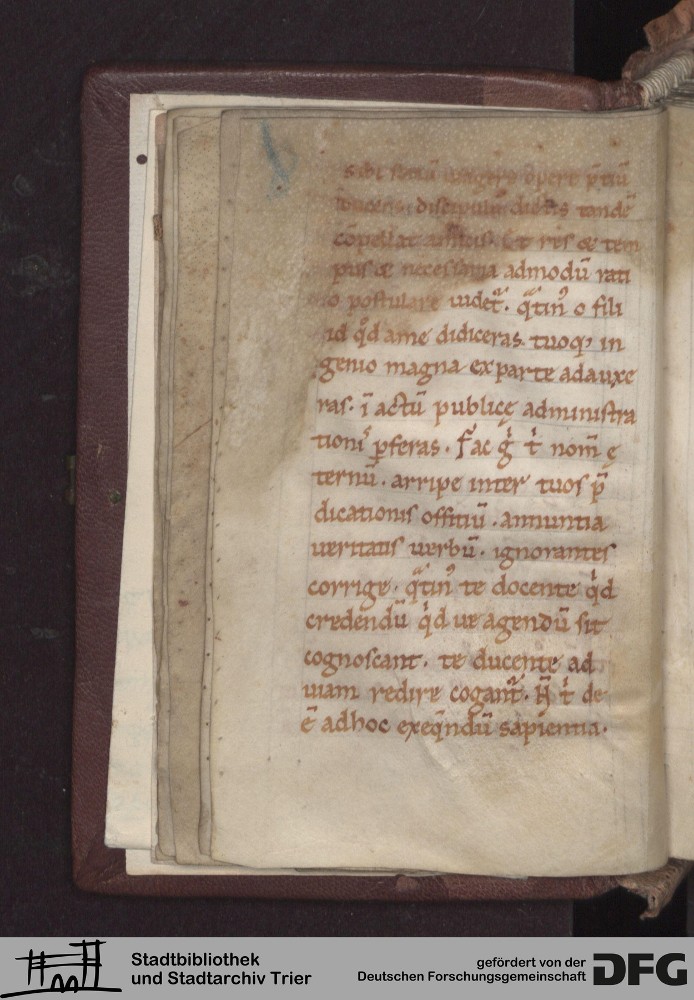 opere p̄tiū
discipulū dictis tandē
cōpellat Et res & tem
pus & necessaria admodū rati
o postulare uidet᷑. q̄tin᷒ o fili
id q̊d a me didiceras. tuoq; in
genio magna ex parte adauxe
ras. ī actū publicę administra
tionis p̱feras. Fac gͥ tͥ nom̄ ę
ternū. arripe inter tuos p̄
dicationis offitiū. annuntia
ueritatis uerbū. ignorantes
corrige. q̄tin᷒ te docente qͥd
credendū qͥd ue agendū sit
cognoscant. te ducente ad
uiam redire cogant᷑. N̄ tͥ de
ē ad hoc exeq̄ndū sapientia.
Stadtbibliothek
und Stadtarchiv Trier
gefördert von der
Deutschen Forschungsgemeinschaft
DFG